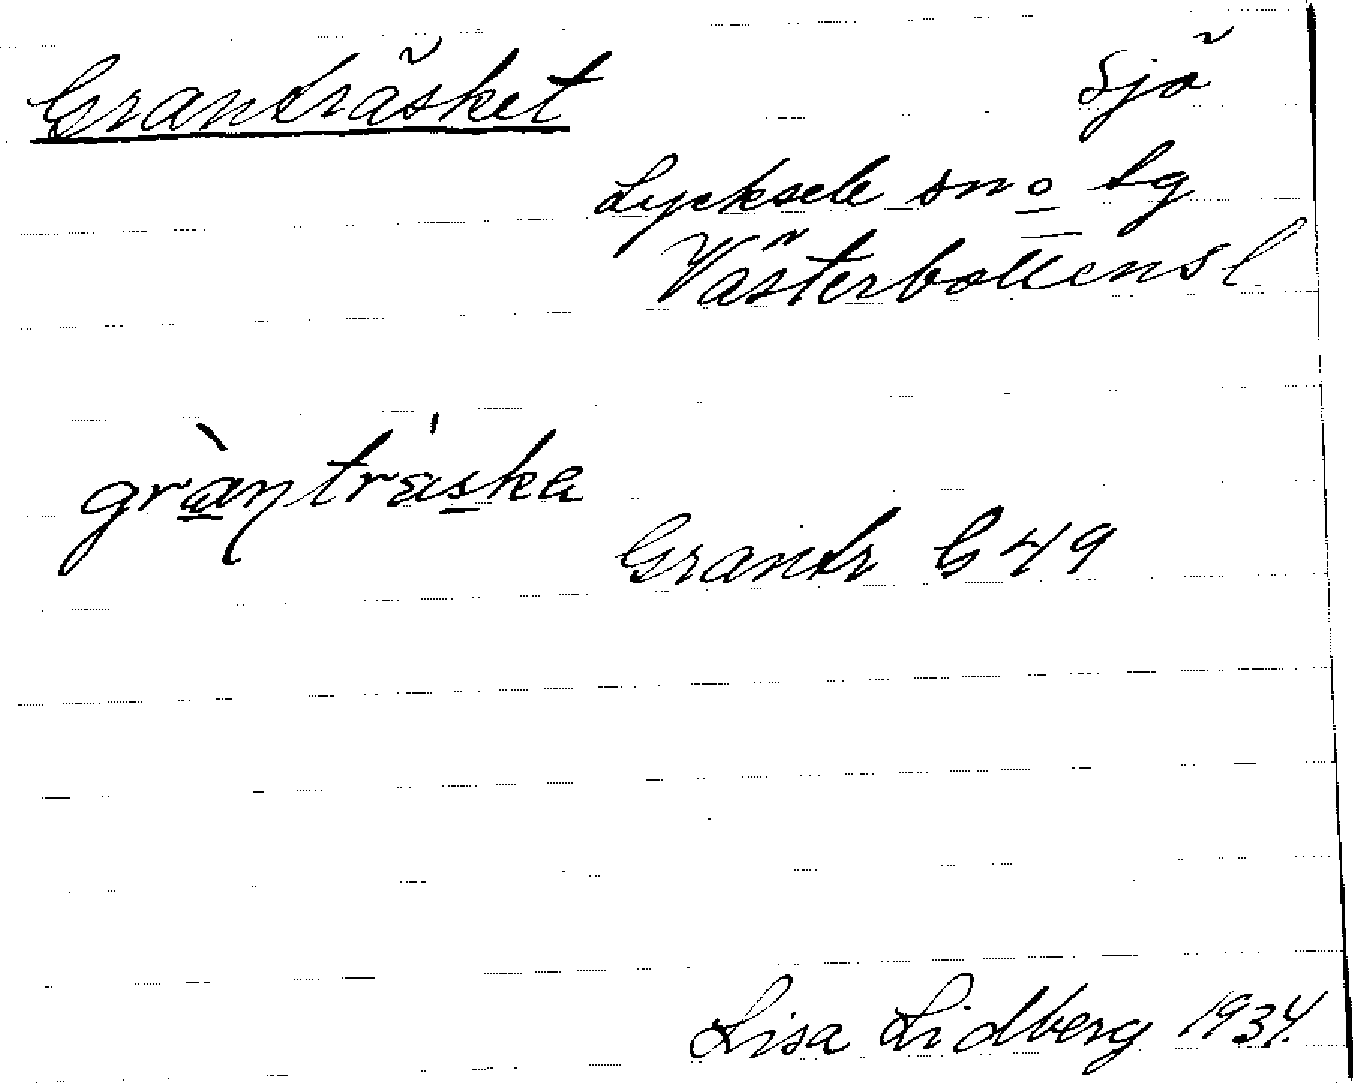 Granträsket Sjö
Lycksele sn o. lg
Västerbottens l
gràntráska
Grantr C 49
Lisa Lidberg 1934.